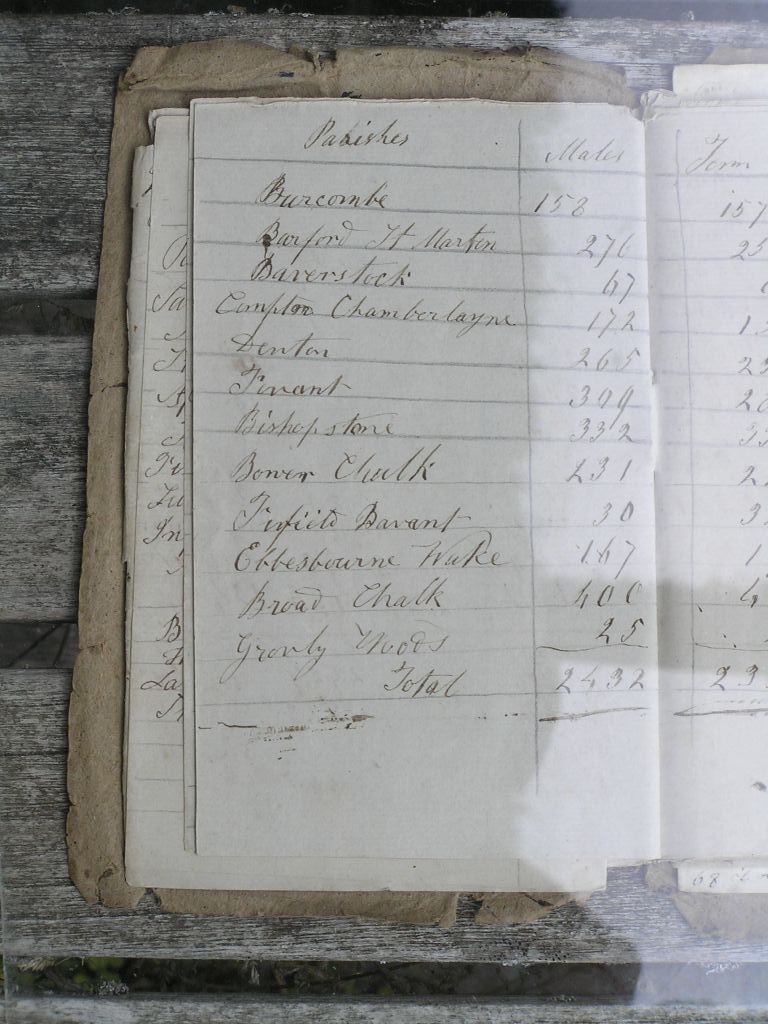 Parishes Males Fem
Burcombe 158 157
Barford St Martin 276 25
Baverstock 67
Compton Chamberlayne 172 13
Denton 265 22
Fovant 309 26
Bishopstone 332 33
Bower Chalk 231 2
Fifield Bavant 30 3
Ebbesbourne Wake 167 1
Broad Chalk 400 4
Grovly Woods 25
Total 2432 23